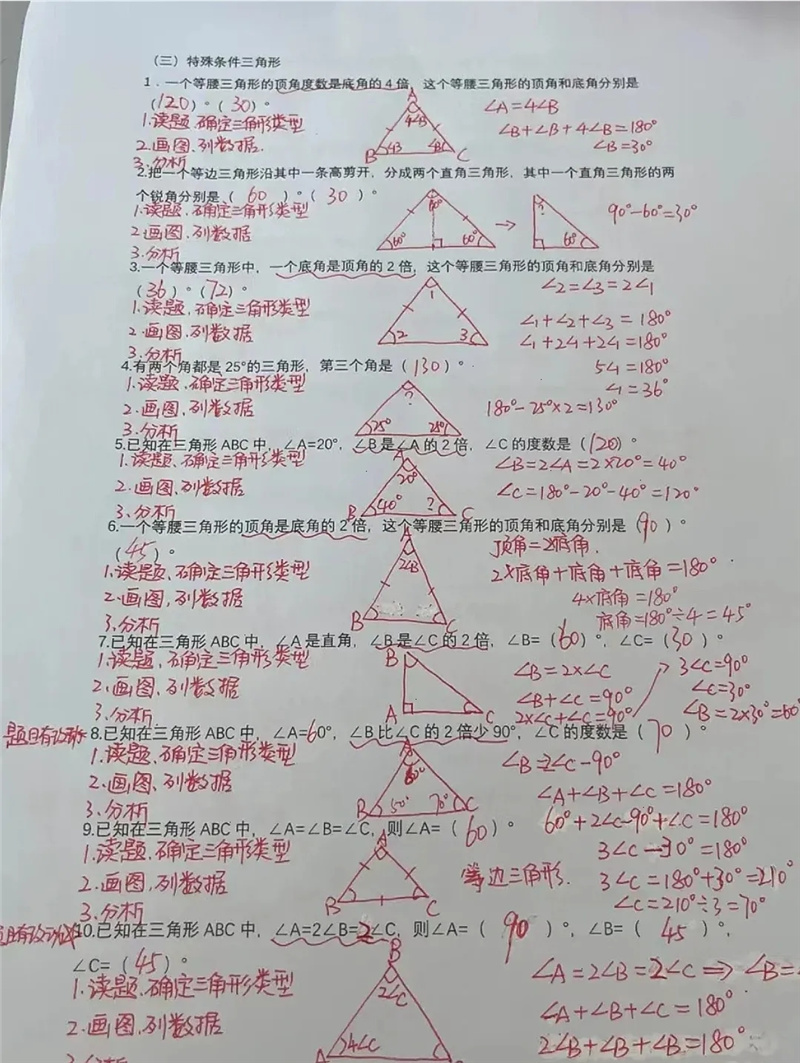 （三）特殊条件三角形
1．一个等腰三角形的顶角度数是底角的4倍，这个等腰三角形的顶角和底角分别是
（120）°（30）°
1.读题、确定三角形类型
2.画图、列数据.
3.分析
A
4∠B
B ∠B ∠B C
∠A=4∠B
∠B+∠B+4∠B=180°
∠B=30°
2.把一个等边三角形沿其中一条高剪开，分成两个直角三角形，其中一个直角三角形的两
个锐角分别是（ 60 ）°（ 30 ）°
1.读题、确定三角形类型
2.画图、列数据
3.分析
60°
60° 60°
→
?
60°
90°-60°=30°
3.一个等腰三角形中，一个底角是顶角的2倍，这个等腰三角形的顶角和底角分别是
（36）°（72）°
1.读题、确定三角形类型
2.画图、列数据
3.分析
1
2 3
∠2=∠3=2∠1
∠1+∠2+∠3=180°
∠1+2∠1+2∠1=180°
5∠1=180°
∠1=36°
4.有两个角都是25°的三角形，第三个角是（130）°。
1.读题、确定三角形类型
2.画图、列数据
3.分析
?
25° 25°
180°-25°×2=130°
5.已知在三角形ABC中，∠A=20°，∠B是∠A的2倍，∠C的度数是（120）°
1.读题、确定三角形类型
2.画图、列数据
3.分析
A
20°
B 40° ? C
∠B=2∠A=2×20°=40°
∠C=180°-20°-40°=120°
6.一个等腰三角形的顶角是底角的2倍，这个等腰三角形的顶角和底角分别是（90）°
（45）°。
1.读题、确定三角形类型
2.画图、列数据
3.分析
A
2∠B
B C
顶角=2底角.
2×底角+底角+底角=180°
4×底角=180°
底角=180°÷4=45°
7.已知在三角形ABC中，∠A是直角，∠B是∠C的2倍，∠B=（60）°，∠C=（30）°
1.读题、确定三角形类型
2.画图、列数据
3.分析
B
A C
∠B=2×∠C
∠B+∠C=90°
2×∠C+∠C=90°
3∠C=90°
∠C=30°
∠B=2×30°=60°
8.已知在三角形ABC中，∠A=60°，∠B比∠C的2倍少90°，∠C的度数是（ 70 ）°
1.读题、确定三角形类型
2.画图、列数据
3.分析
A
60°
B 50° 70° C
∠B=2∠C-90°
∠A+∠B+∠C=180°
60°+2∠C-90°+∠C=180°
3∠C-30°=180°
3∠C=180°+30°=210°
∠C=210°÷3=70°
9.已知在三角形ABC中，∠A=∠B=∠C，则∠A=（ 60 ）°
1.读题、确定三角形类型
2.画图、列数据
3.分析
A
B C
等边三角形.
10.已知在三角形ABC中，∠A=2∠B=2∠C，则∠A=（ 90 ）°，∠B=（ 45 ）°，
∠C=（45）°
1.读题、确定三角形类型
2.画图、列数据
3.分析
B
2∠C
4∠C
∠A=2∠B=2∠C⇒∠B=
∠A+∠B+∠C=180°
2∠B+∠B+∠B=180°